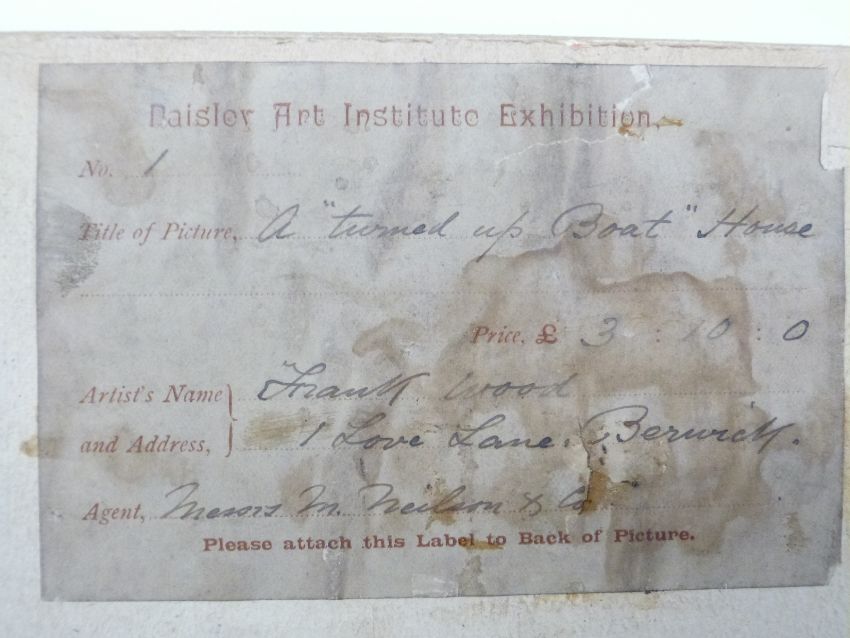 Paisley Art Institute Exhibition.
No. 1
Title of Picture, A "turned up Boat" House
Price, £ 3 : 10 : 0
Artist's Name Frank Wood
and Address, 1 Love Lane. Berwick.
Agent, Messrs M. Neilson & Co
Please attach this Label to Back of Picture.